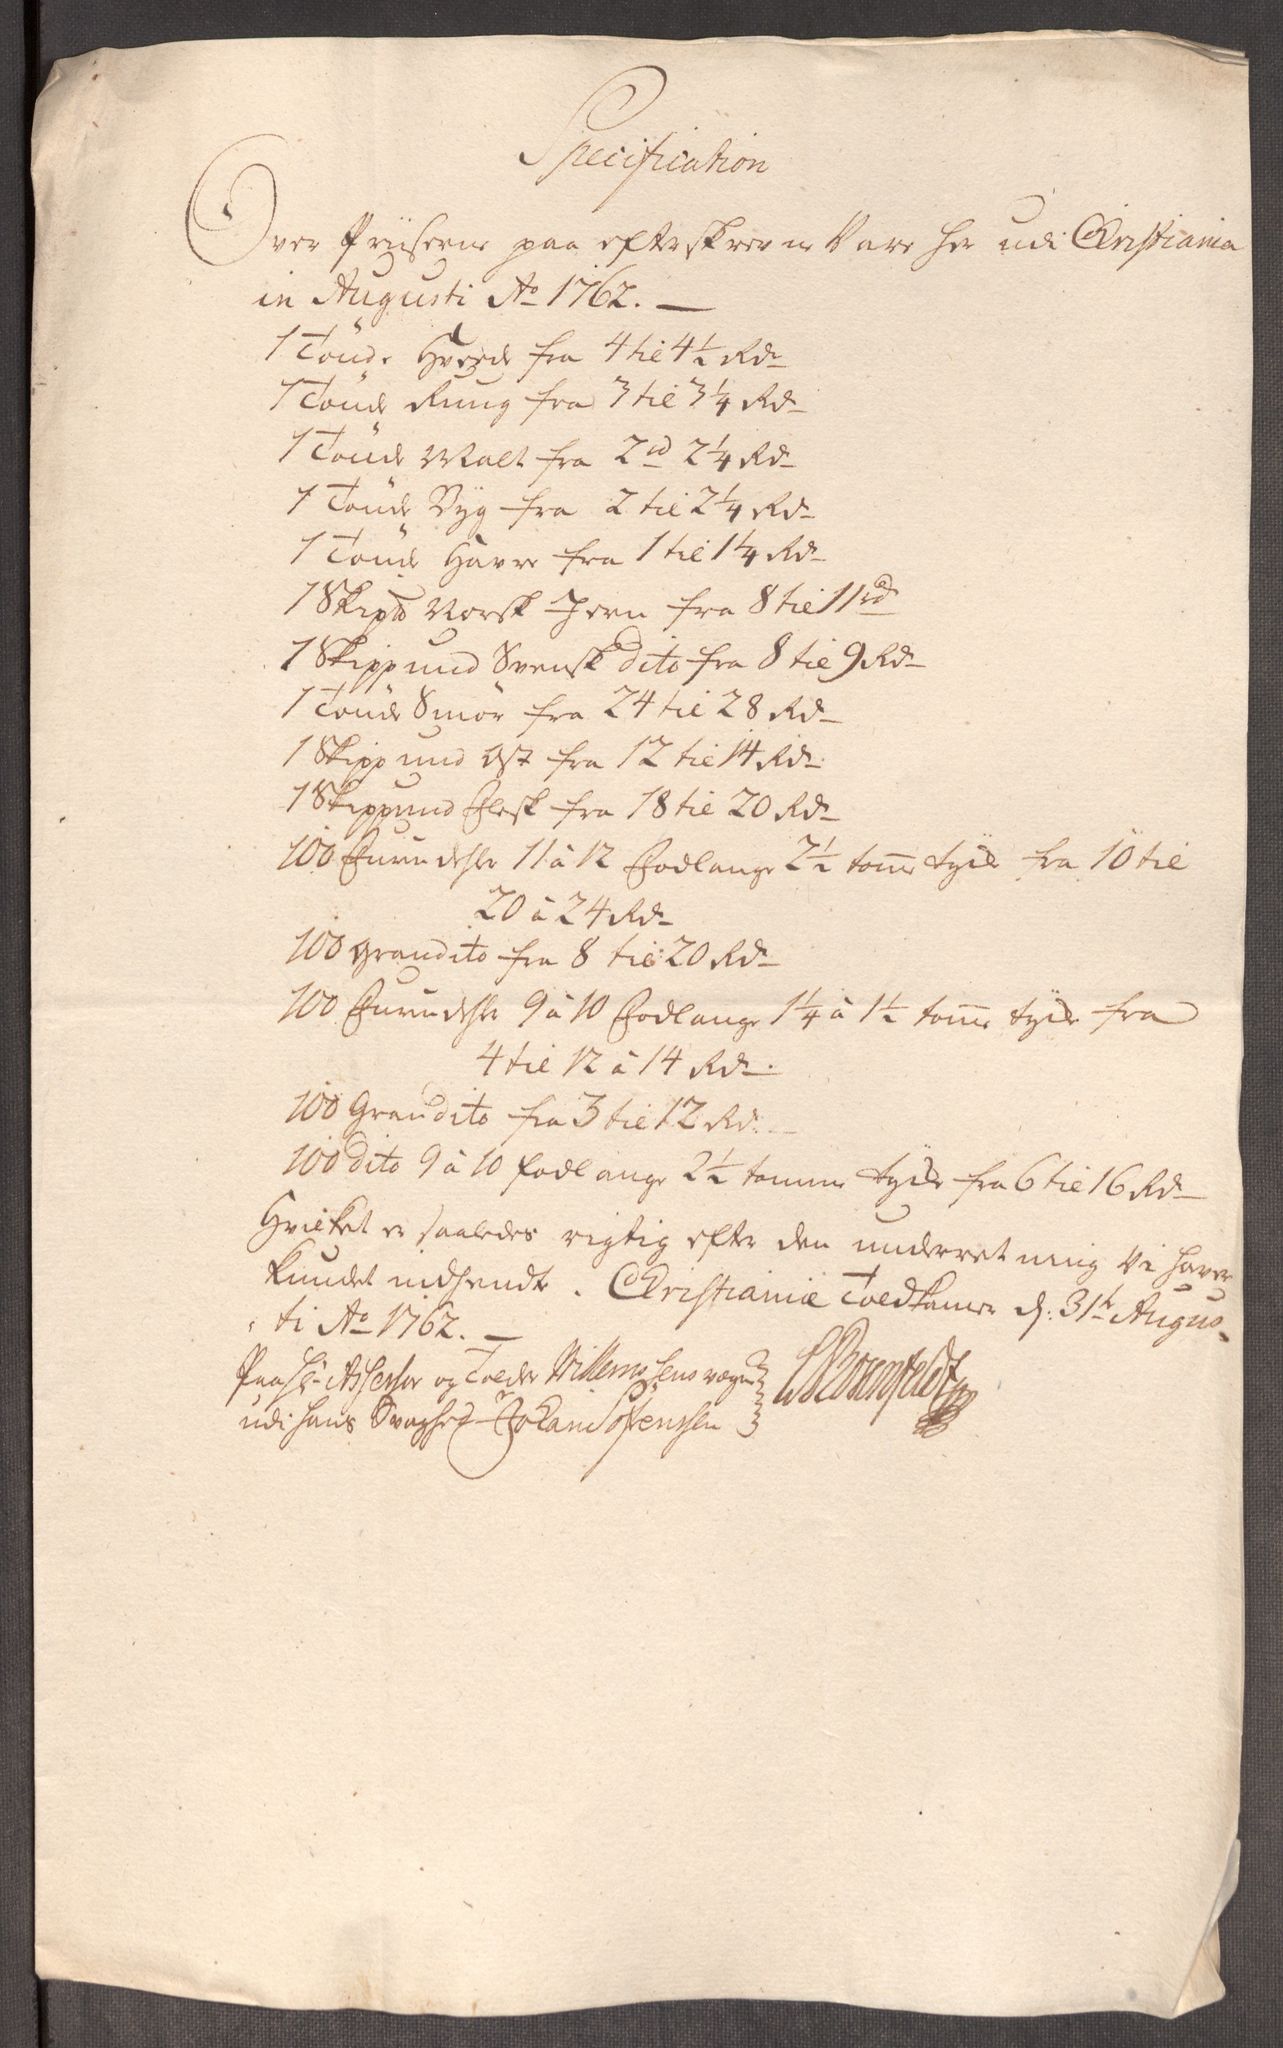 Specification
Over Priiserne paa efterskrevne Vare her udi Christiania
in Augusti Ao 1762. —
1 Tönde Hvede fra 4 til 4½ Rdr
1 Tönde Rung fra 3 til 3¼ Rdr
1 Tönde Malt fra 2 id 2¼ Rdr
1 Tönde Byg fra 2 til 2¼ Rdr
1 Tönde Havre fra 1 til 1¼ Rdr
1 Skipd Norsk Jern fra 8 til 11 rd
1 Skippund Svensk dito fra 8 til 9 Rdr
1 Tönde Smör fra 24 til 28 Rdr
1 Skippund Ost fra 12 til 14 Rdr
1 Skippund Flesk fra 18 til 20 Rdr
100 Furudehle 11 à 12 Fodlange 2½ tomme tyke fra 10 til
20 à 24 Rdr
100 Grandito fra 8 til 20 Rdr
100 Furudehle 9 à 10 Fodlange 1¼ à 1½ tomme tyke fra
4 til 12 à 14 Rdr.
100 Grandito fra 3 til 12 Rdr
100 dito 9 à 10 fodlange 2½ tomme tyke fra 6 til 16 Rdr
Hvilket er saaledes rigtig efter den underretning Vi haver
kundet indhendte. Christianiæ Toldkamer d: 31te Augus-
ti Ao 1762. —
Paa Hr Assessor og Tolder Willemsens vegne
udi hans Svaghed Johan Sörenssen